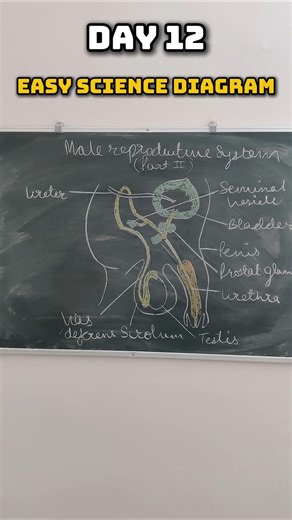 DAY 12
EASY SCIENCE DIAGRAM
Male reproductive System
(Part II)
Ureter
Seminal
vesicle
Bladder
Penis
Prostat glan
Urethra
Vas
deferent
Scrotum
Testis